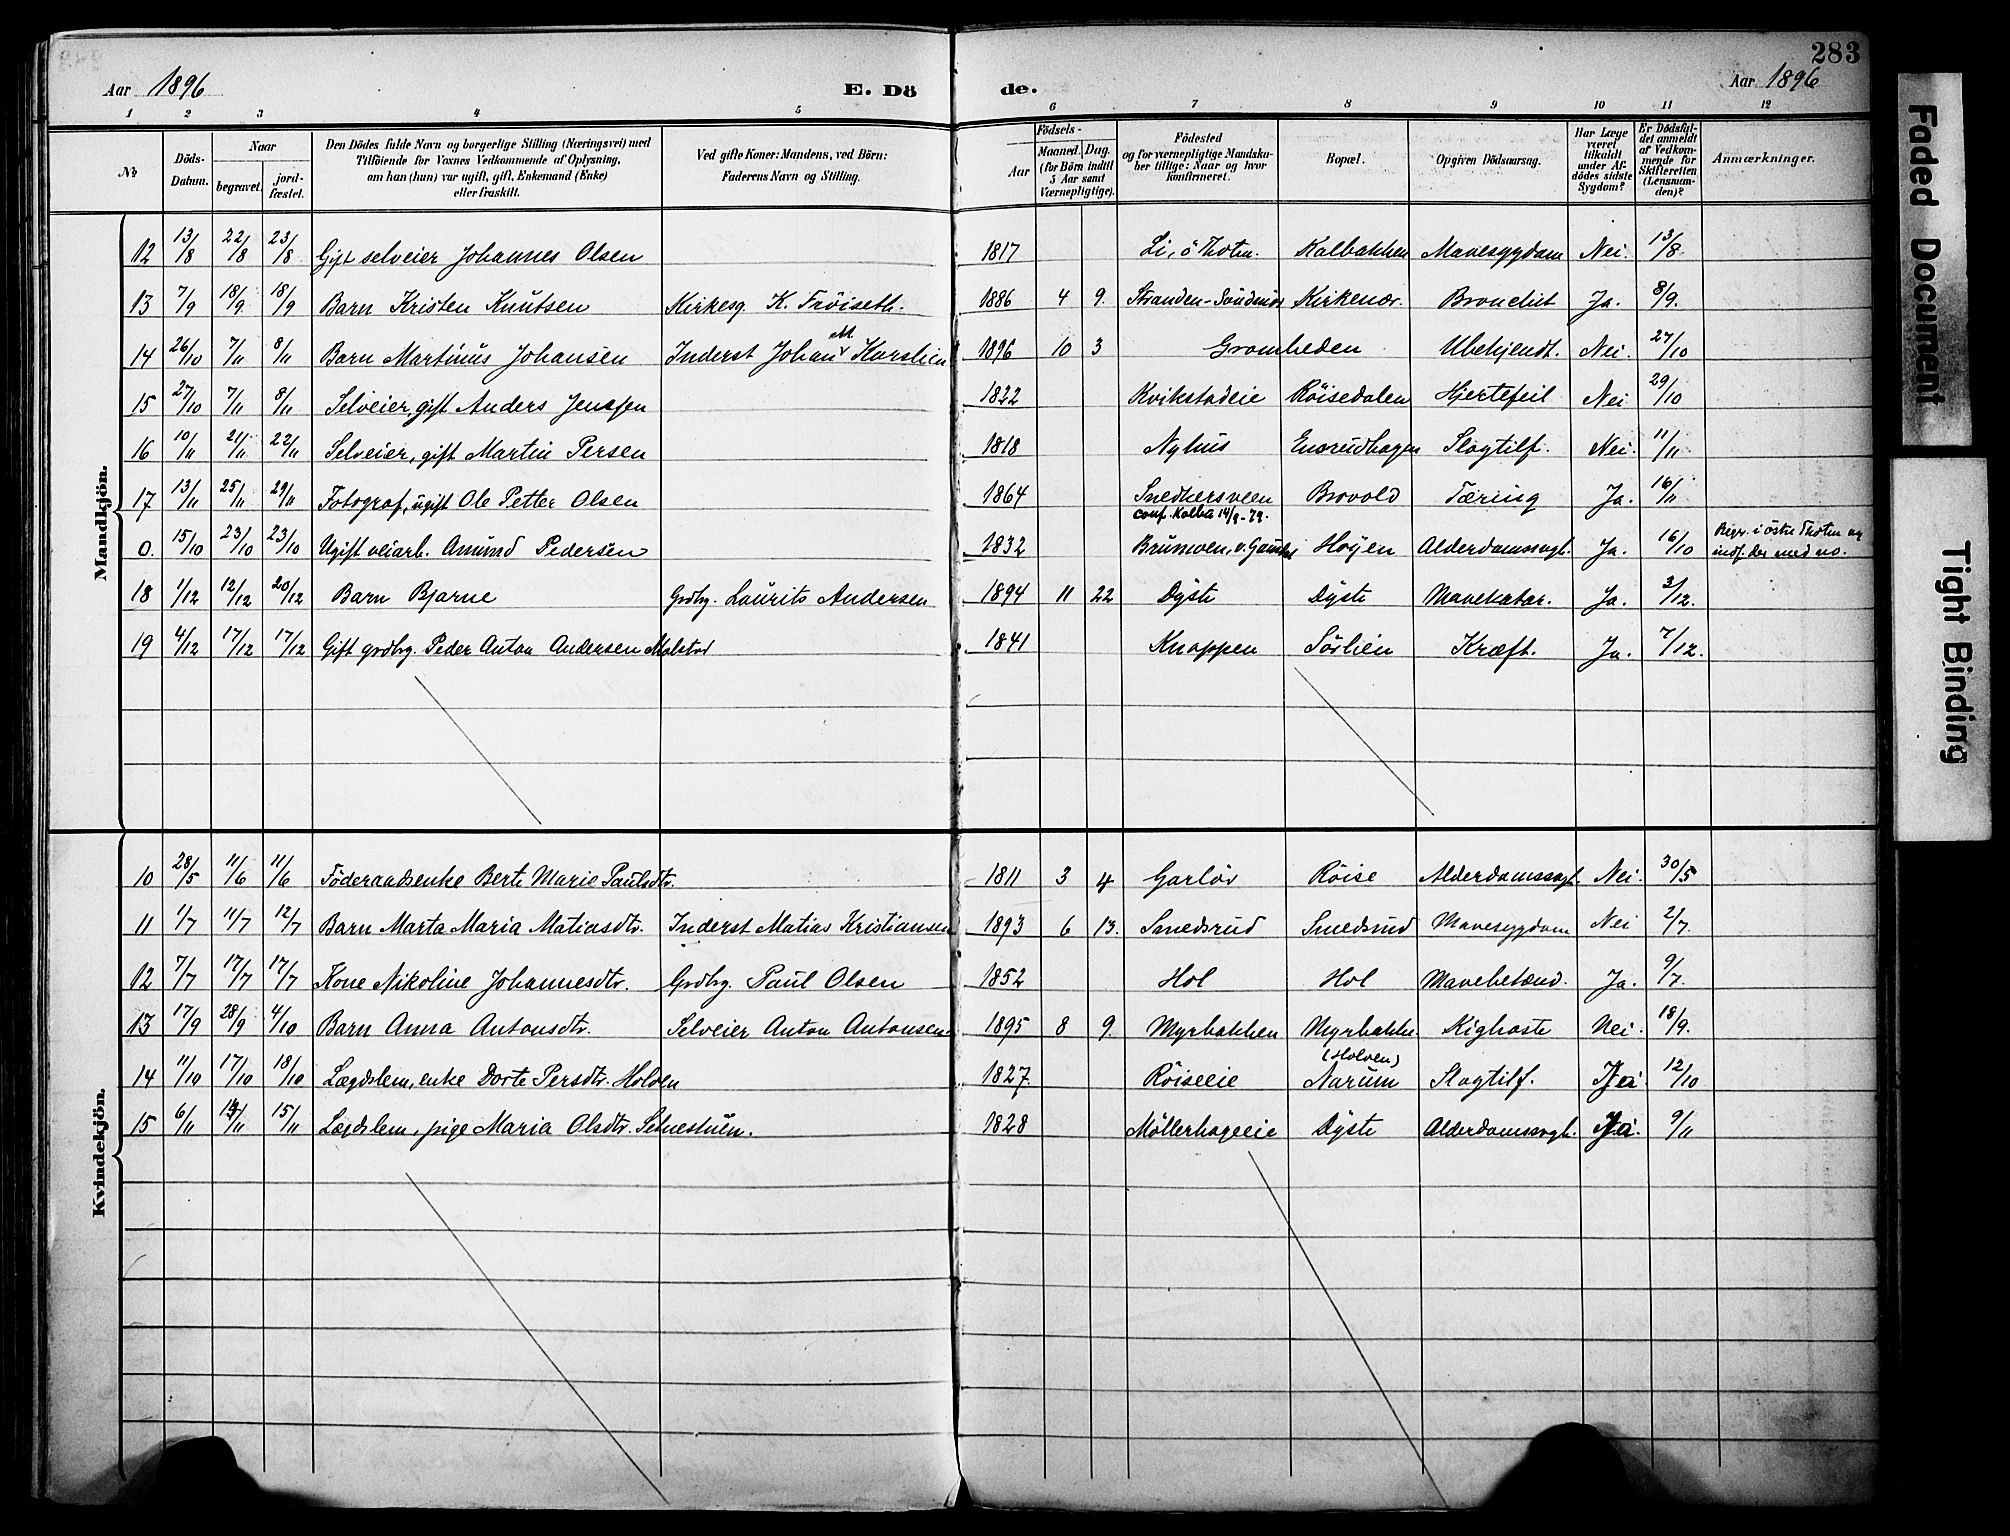 283
Aar 1896 E. Dö de. Aar 1896
1 2 3 4 5 6 7 8 9 10 11 12
No Döds-Datum. Naar begravet. jord-fæstet. Den Dödes fulde Navn og borgerlige Stilling (Næringsvei) med Tilföiende for Voxnes Vedkommende af Oplysning, om han (hun) var ugift, gift, Enkemand (Enke) eller fraskilt. Ved gifte Koner: Mandens, ved Börn: Faderens Navn og Stilling. Födsels- Aar Maaned. Dag. (for Börn indtil 5 Aar samt Værnepligtige). Födested og for værnepligtige Mandskaber tillige: Naar og hvor konfirmeret. Bopæl. Opgiven Dödsaarsag. Har Læge været tilkaldt under Afdödes sidste Sygdom? Er Dödsfaldet anmeldt af Vedkommende for Skifteretten (Lensmanden)? Anmærkninger.
Mandkjön.
12 13/8 22/8 23/8 Gift selveier Johannes Olsen 1817 Li, ö Thoten. Kalbakken Mavesygdom Nei. 13/8.
13 7/9 18/9 18/9 Barn Kristen Knutsen Kirkesg. K. Fröiseth. 1886 4 9. Stranden-Söndmör Kirkenær. Bronchit Ja. 8/9.
14 26/10 7/11 8/11 Barn Martinus Johansen Inderst Johan M. Karslien 1896 10 3 Gromheden Ubekjendt. Nei. 27/10
15 27/10 7/11 8/11 Selveier, gift Anders Jenssen 1822 Kvikstadeie Röisedalen Hjertefeil Nei 29/10
16 10/11 21/11 22/11 Selveier, gift Martin Persen 1818 Nyhus Enerudhagen Slagtilf. Nei. 11/11
17 13/11 25/11 29/11 Fotograf, ugift Ole Petter Olsen 1864 Snedkersveen Brovold Tæring Ja. 16/11
conf. Kolbu 14/9-79.
0. 15/10 23/10 23/10 Ugift veiarb. Amund Pedersen 1832 Höijen Alderdomssvagh. Ja. 16/10 Begr. i östre Thoten og indf. der med no.
18 1/12 12/12 20/12 Barn Bjarne Grdbg. Laurits Andersen 1894 11 22 Dyste Dyste Mavekatar. Ja. 3/12.
19 4/12 17/12 17/12 Gift grdbg. Peder Anton Andersen Molstad 1841 Knappen Sörlien Kræft. Ja. 7/12.
Kvindekjön.
10 28/5 11/6 11/6 Föderaadsenke Berte Marie Paulsdtr. 1811 3 4 Garlöv Röise Alderdomssvagh. Nei. 30/5
11 1/7 11/7 12/7 Barn Marta Maria Matiasdtr. Inderst Matias Kristiansen 1893 6 13. Smedsrud Smedsrud Mavesygdom Nei 2/7.
12 7/7 17/7 17/7 Kone Nikoline Johannesdtr. Grdbrg. Paul Olsen 1852 Hol Hol Mavebetænd. Ja. 9/7.
13 17/9 28/9 4/10 Barn Anna Antonsdtr. Selveier Anton Antonsen 1895 8 9. Myrbakken Myrbakke. Kighoste Nei. 18/9.
14 11/10 17/10 18/10 Lægdslem, enke Dorte Persdtr. Holven 1827. Röiseeie (Holven) Narum Slagtilf. Nei. 12/10
15 6/11 14/11 15/11 Lægdslem, pige Maria Olsdtr. 1828 Möllerhageeie Dyste Alderdomssvagh. 9/11
Faded Document
Tight Binding